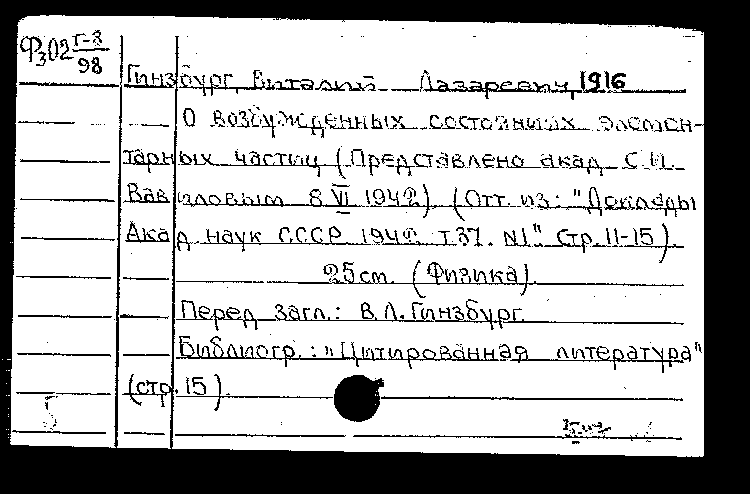 Ф302 Г-3
98
Гинзбург, Виталий Лазаревич, 1916
О возбужденных состояниях элемен-
тарных частиц (Представлено акад. С.И.
Вавиловым 8 VI 1942) (Отт. из: "Доклады
Акад. наук СССР. 1942. т.37. N1". Стр. 11-15).
25см. (Физика).
Перед загл.: В.Л. Гинзбург.
Библиогр.: "Цитированная литература"
(стр. 15).
5